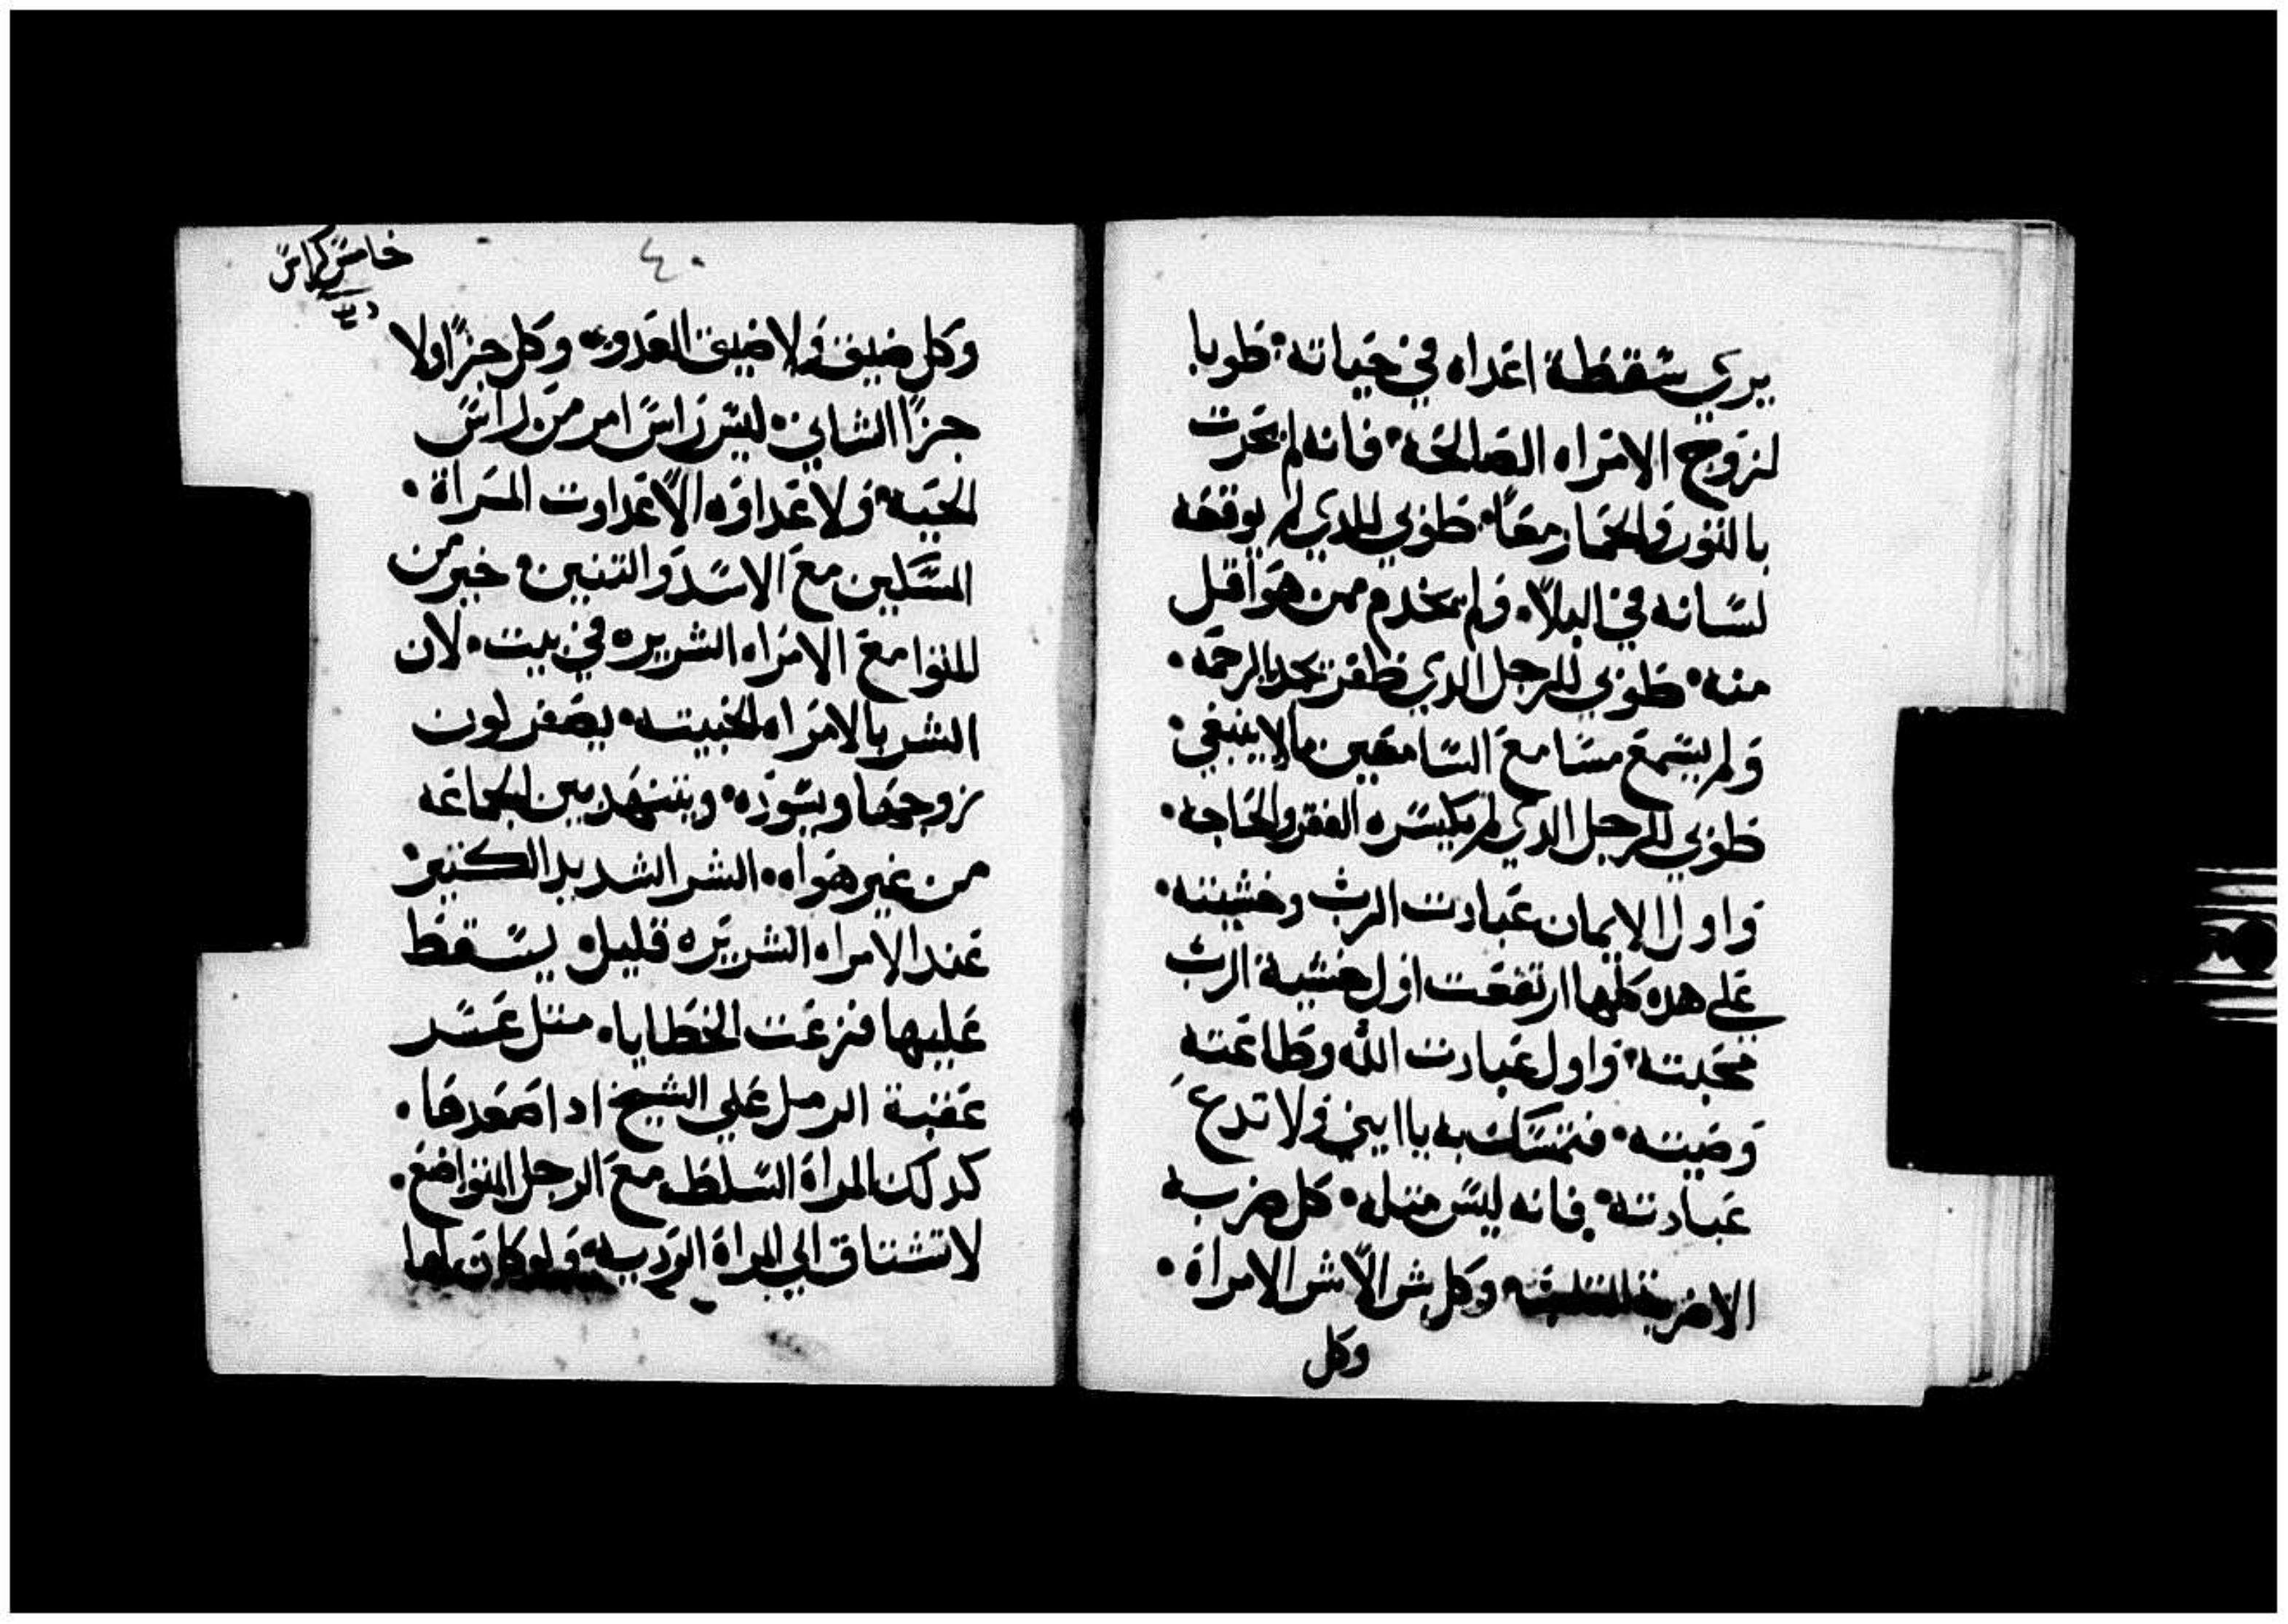 يري سقطة اعداه في حياته طوبا
لزوج الامراه الصالحه فانه لم يحرت
بالثور والحمار معًا طوبي للدي لم يوقعه
لسانه في البلا ولم يخدم ممن هو اقل
منه طوبي للرجل الدي ظفرت يداه بالرحمه
ولم يسمع مسامع السامعين ما لا ينبغي
طوبي للرجل الدي لم يكسره الفقر والحاجه
واول الايمان عبادت الرب وخشيته
علي هده كلها ارتفعت اول خشية الرب
محبته واول عبادت الله وطاعته
وصيته فتمسك به يا ابني ولا تدع
عبادته فانه ليس مثله كل ضربه
الا ضربة وكل شر الّا شر الامراة
وكل
٤٠
خامس كراس
وكل ضيق ولا ضيق العدو وكل جزا ولا
جزا الشاني ليس راس امر من راس
الحيه ولا عداوه الّا عداوت المراة
السكين مع الاسد والتنين خير من
المثوا مع الامراه الشريره في بيت لان
الشر بالامراه الخبيته يصفر لون
زوجها ويسوده ويتنهد بين الجماعه
من غير هواه الشر الشديد الكثير
عند الامراه الشريره قليل يسقط
عليها قرعت الخطايا مثل عسر
عقبة الرمل علي الشيخ ادا صعدها
كدلك المراة السلطه مع الرجل المتواضع
لا تشتاق الي المراة الرديه ولو كان لها